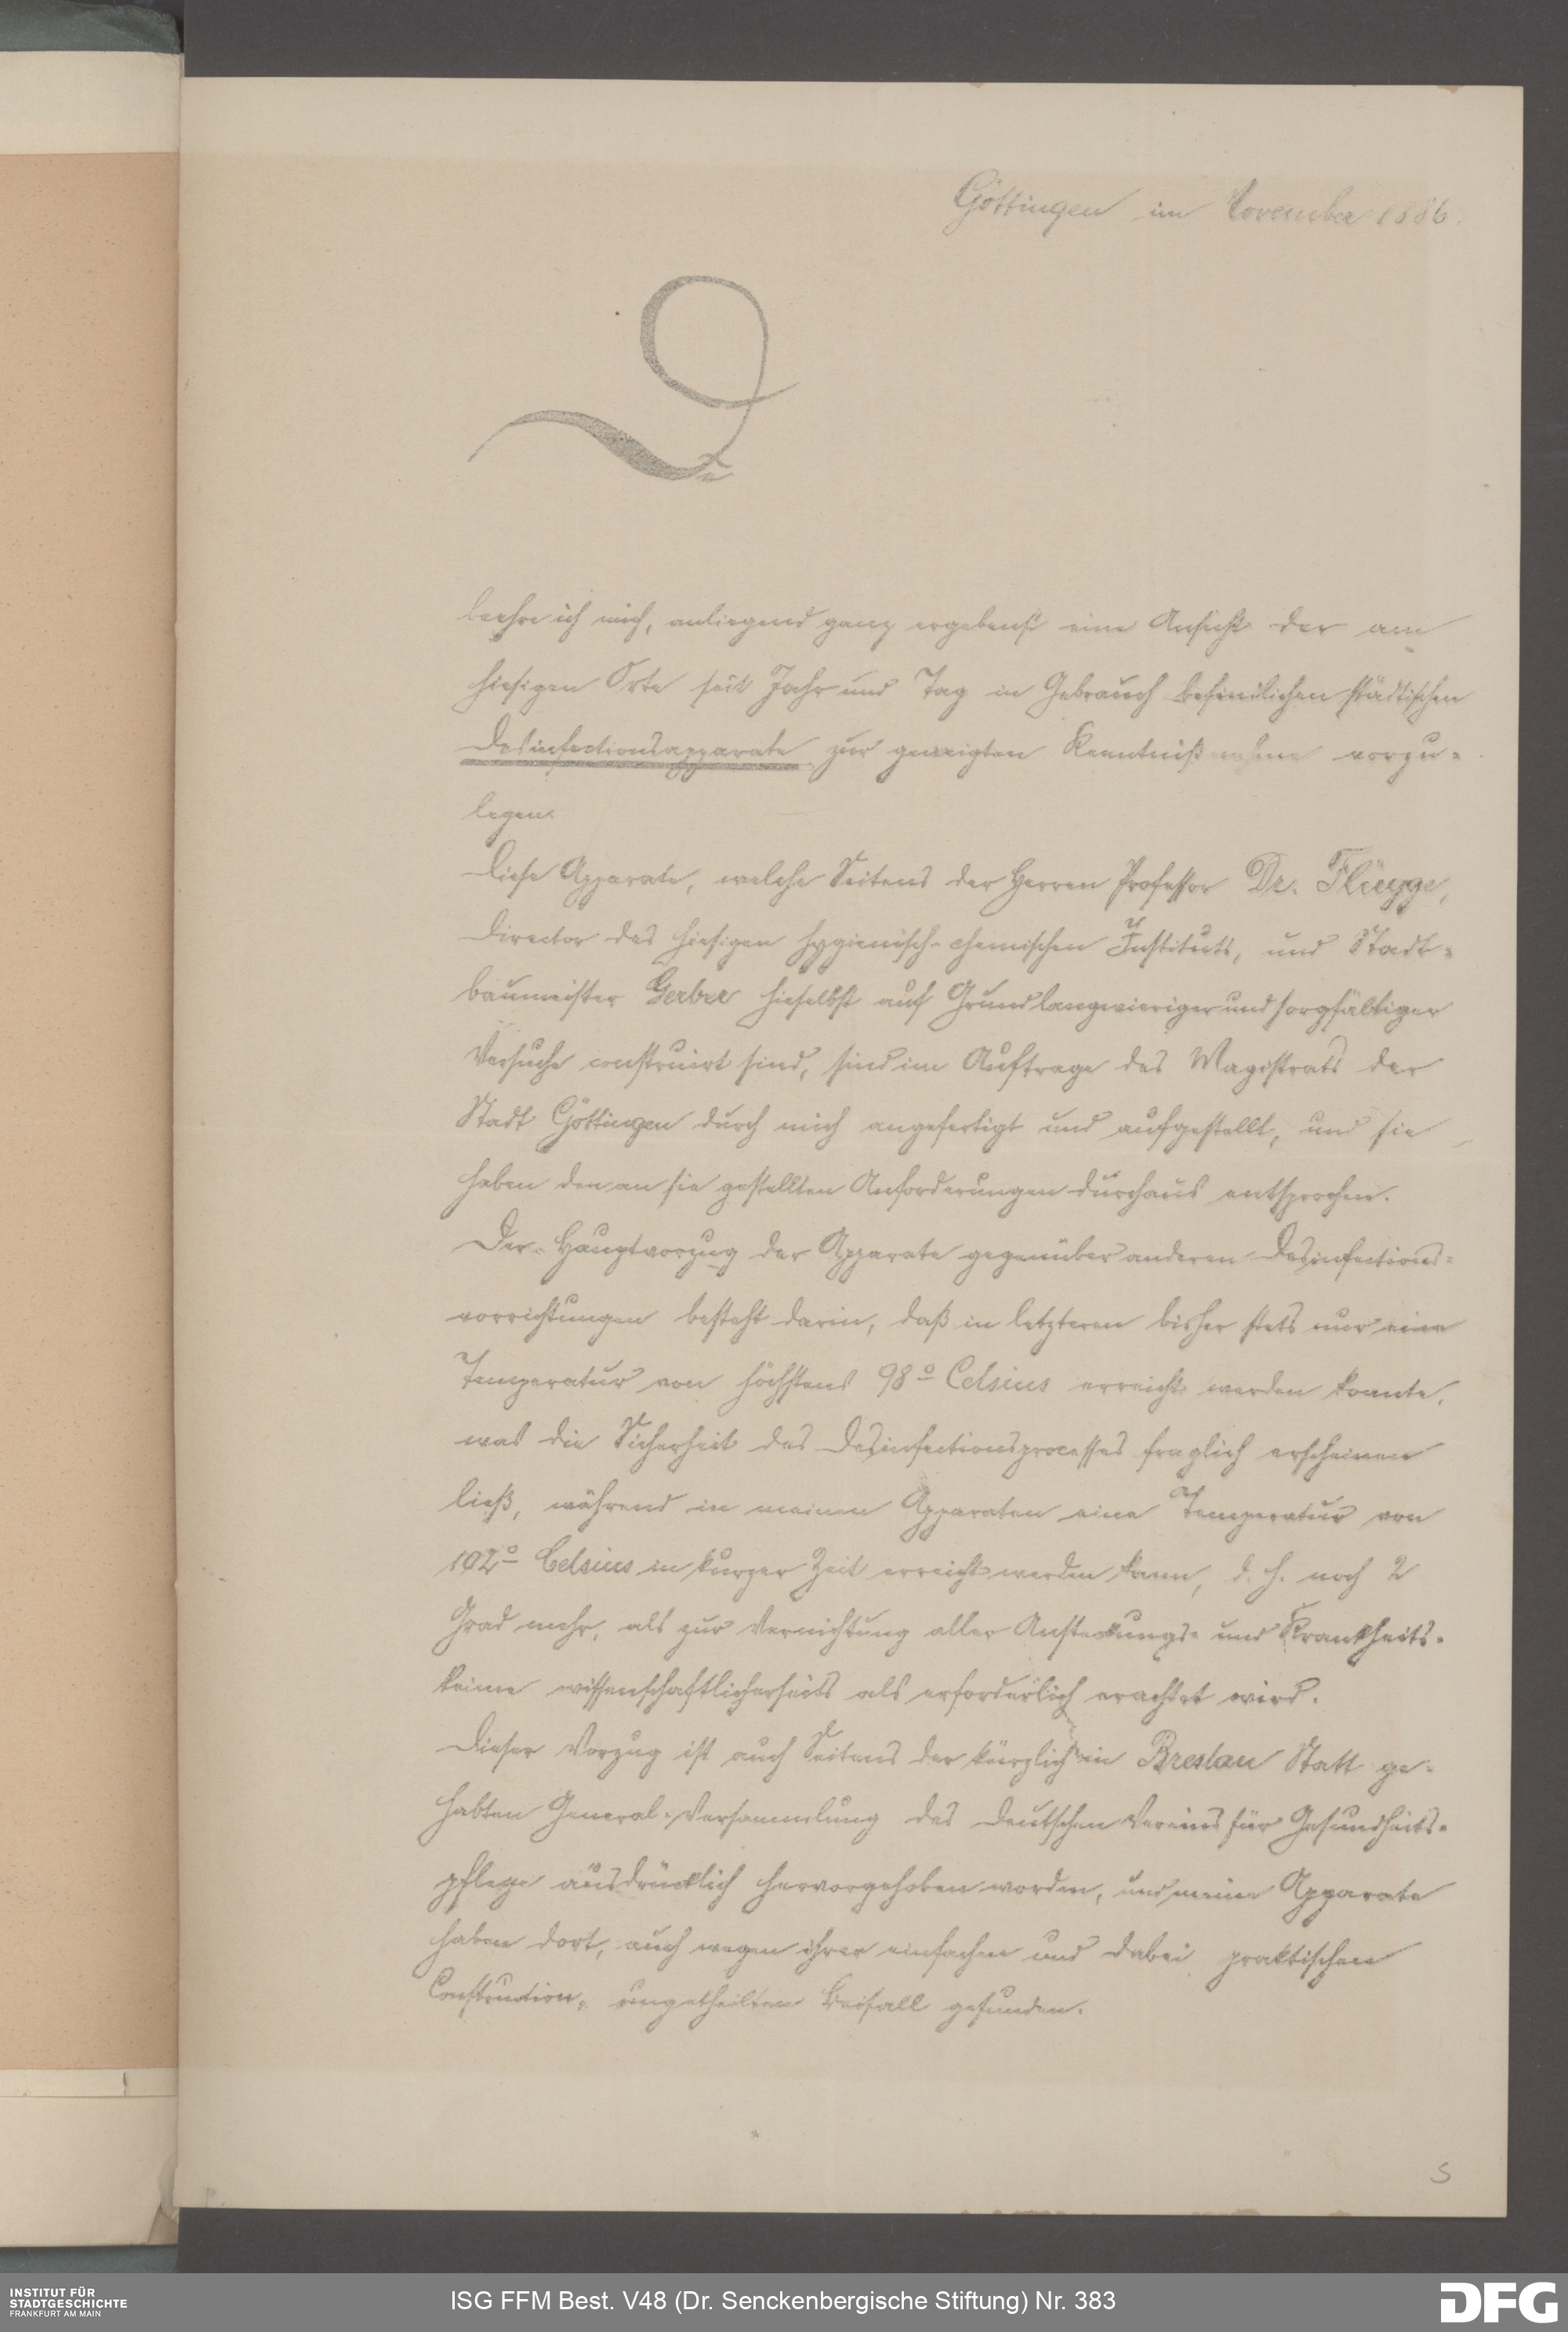 Göttingen im November 1886.
beehre ich mich, anliegend ganz ergebenst eine Ansicht der am
hiesigen Orte seit Jahr und Tag in Gebrauch befindlichen städtischen
Desinfectionsapparate zur geneigten Kenntnißnahme vorzu-
legen.
Diese Apparate, welche Seitens der Herren Professor Dr. Flügge,
Director des hiesigen hygienisch-chemischen Instituts, und Stadt-
baumeister Gerber hieselbst auf Grund langwieriger und sorgfältiger
Versuche construirt sind, sind im Auftrage des Magistrats der
Stadt Göttingen durch mich angefertigt und aufgestellt, und sie
haben den an sie gestellten Anforderungen durchaus entsprochen.
Der Hauptvorzug der Apparate gegenüber anderen Desinfections-
vorrichtungen besteht darin, daß in letzteren bisher stets nur eine
Temperatur von höchstens 98° Celsius erreicht werden konnte,
was die Sicherheit des Desinfectionsprocesses fraglich erscheinen
ließ, während in meinen Apparaten eine Temperatur von
102° Celsius in kurzer Zeit erreicht werden kann, d. h. noch 2
Grad mehr, als zur Vernichtung aller Ansteckungs- und Krankheits-
keime wissenschaftlicherseits als erforderlich erachtet wird.
Dieser Vorzug ist auch Seitens der kürzlich in Breslau Statt ge-
habten General-Versammlung des Deutschen Vereins für Gesundheits-
pflege ausdrücklich hervorgehoben worden, und meine Apparate
haben dort, auch wegen ihrer einfachen und dabei praktischen
Construction, ungetheilten Beifall gefunden.
5
INSTITUT FÜR
STADTGESCHICHTE
FRANKFURT AM MAIN
ISG FFM Best. V48 (Dr. Senckenbergische Stiftung) Nr. 383
DFG